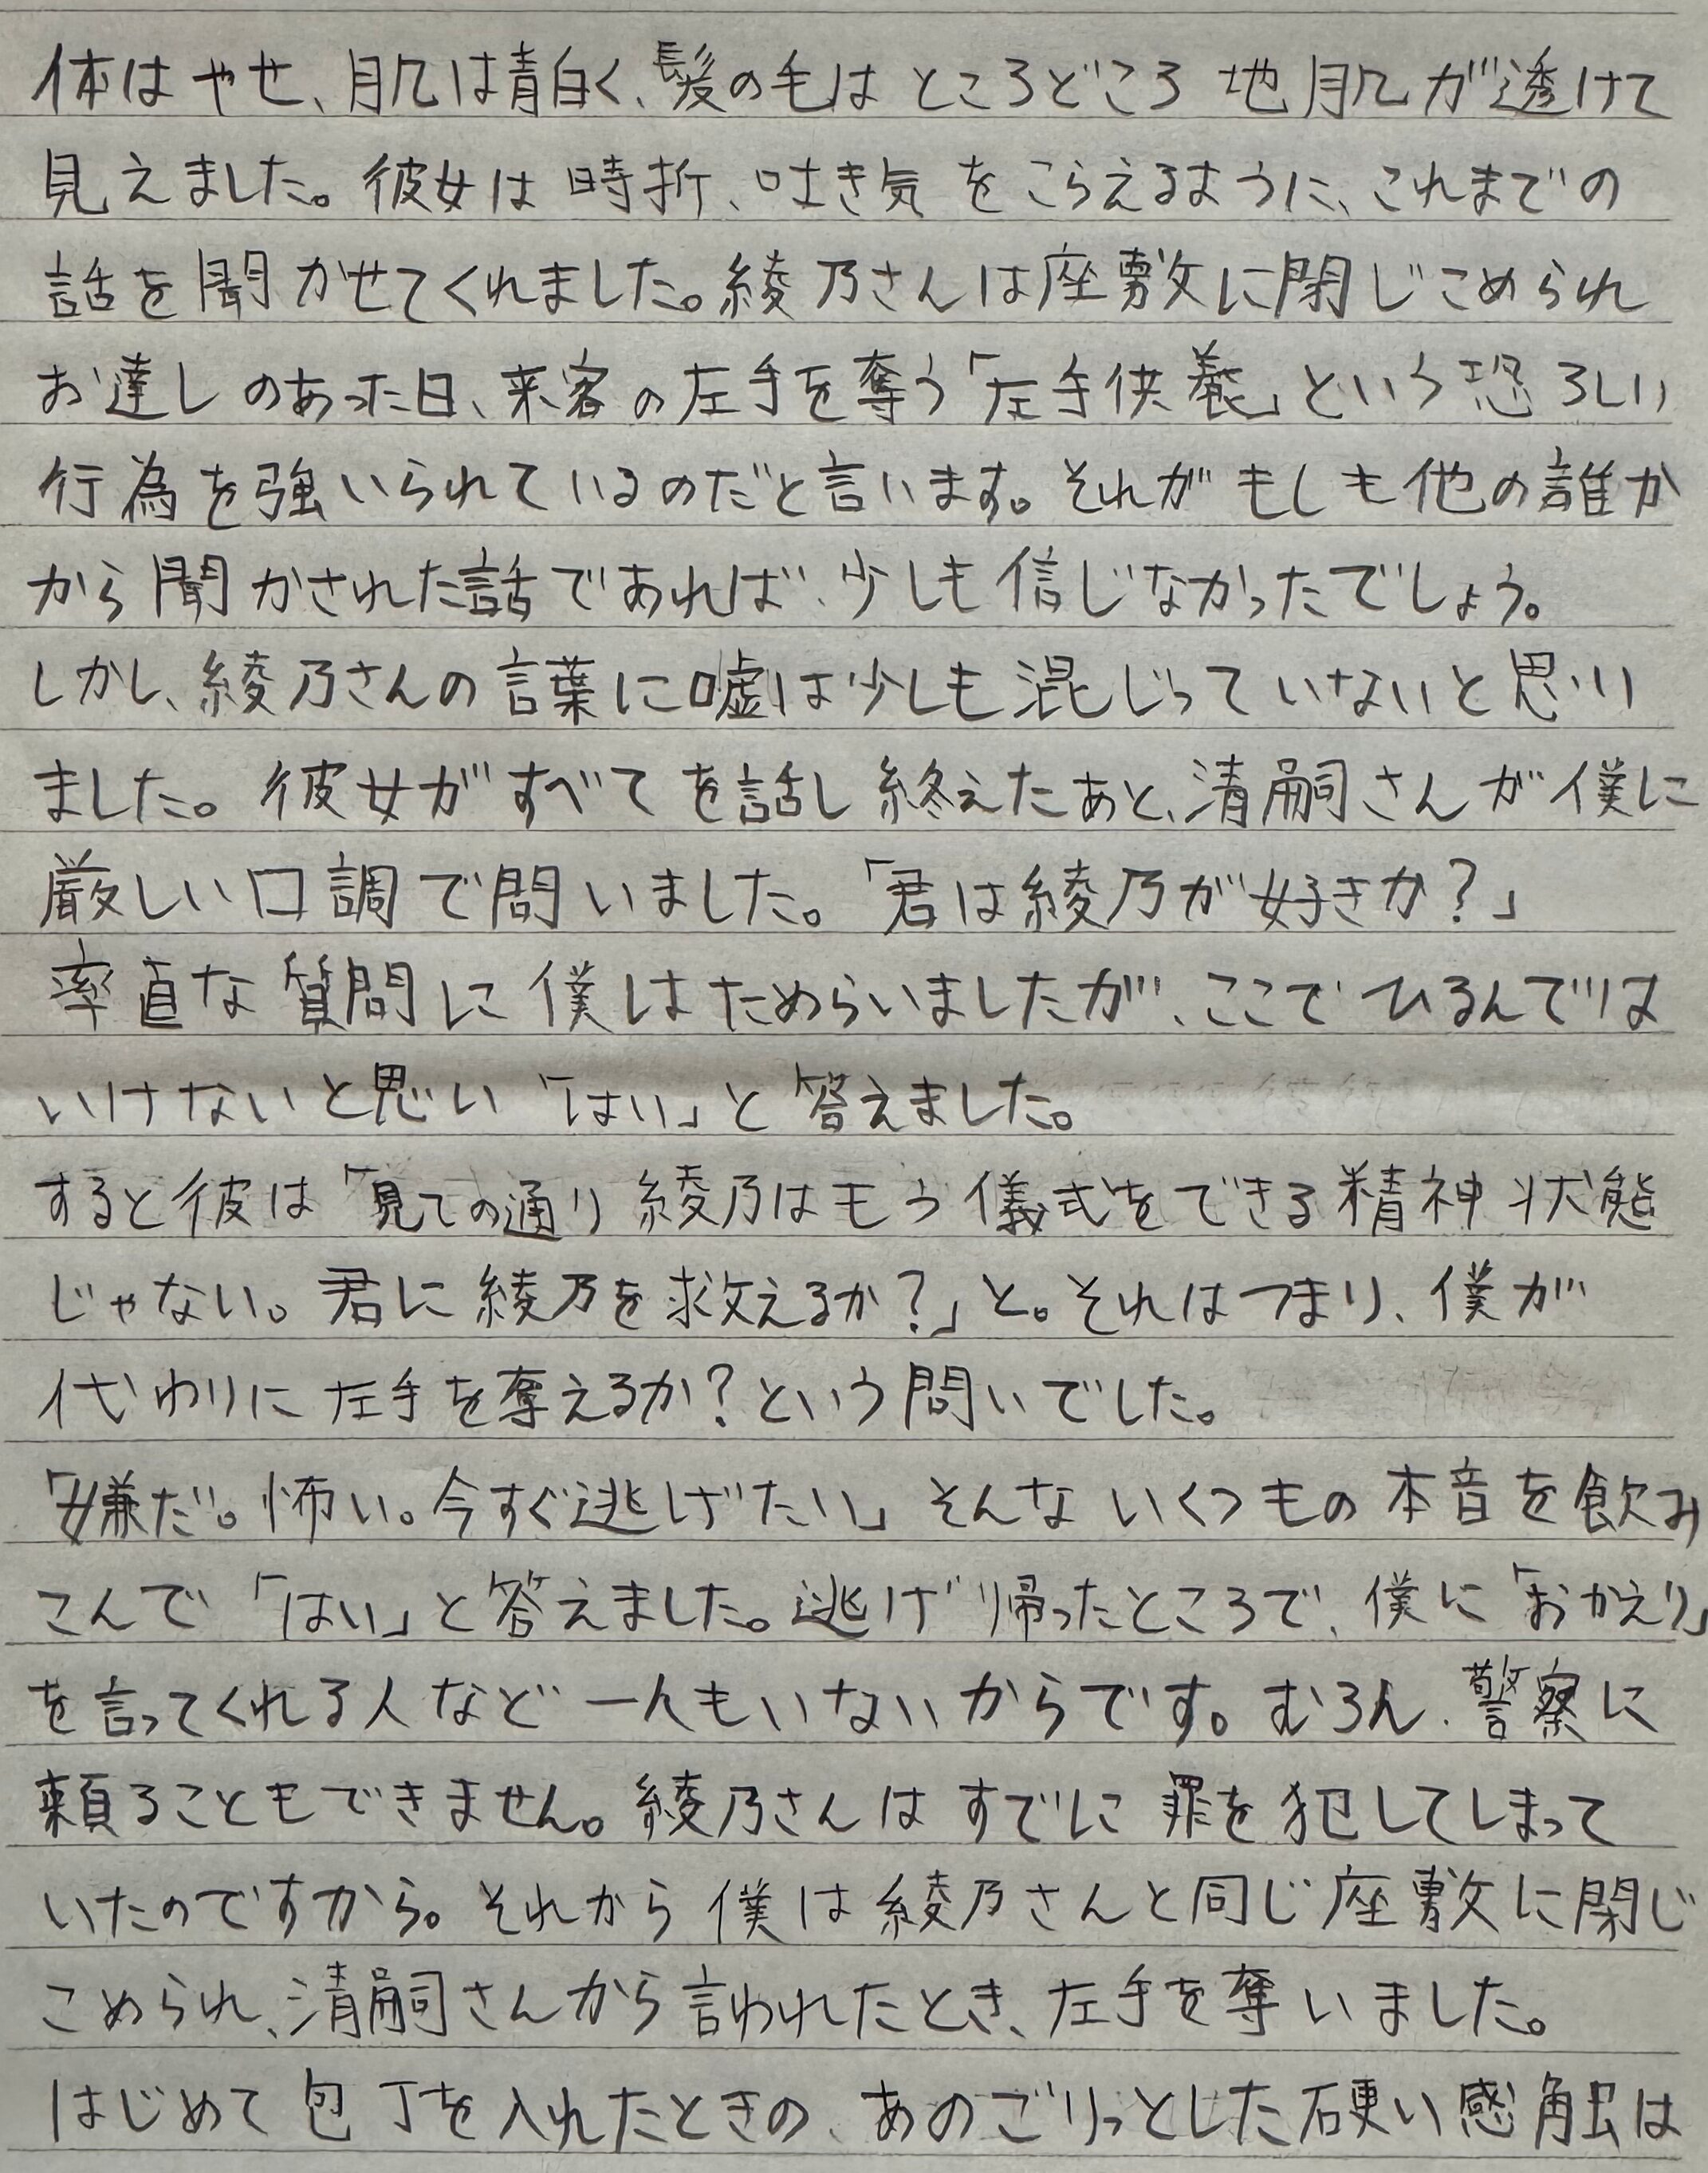 体はやせ、肌は青白く、髪の毛はところどころ地肌が透けて
見えました。彼女は時折、吐き気をこらえるように、これまでの
話を聞かせてくれました。綾乃さんは座敷に閉じこめられ
お達しのあった日、来客の左手を奪う「左手供養」という恐ろしい
行為を強いられているのだと言います。それがもしも他の誰か
から聞かされた話であれば、少しも信じなかったでしょう。
しかし、綾乃さんの言葉に嘘は少しも混じっていないと思い
ました。彼女がすべてを話し終えたあと、清嗣さんが僕に
厳しい口調で問いました。「君は綾乃が好きか?」
率直な質問に僕はためらいましたが、ここでひるんでは
いけないと思い「はい」と答えました。
すると彼は「見ての通り綾乃はもう儀式をできる精神状態
じゃない。君に綾乃を救えるか?」と。それはつまり、僕が
代わりに左手を奪えるか?という問いでした。
「嫌だ。怖い。今すぐ逃げたい」そんないくつもの本音を飲み
こんで「はい」と答えました。逃げ帰ったところで、僕に「おかえり」
を言ってくれる人など一人もいないからです。むろん、警察に
頼ることもできません。綾乃さんはすでに罪を犯してしまって
いたのですから。それから僕は綾乃さんと同じ座敷に閉じ
こめられ、清嗣さんから言われたとき、左手を奪いました。
はじめて包丁を入れたときの、あのごりっとした硬い感触は